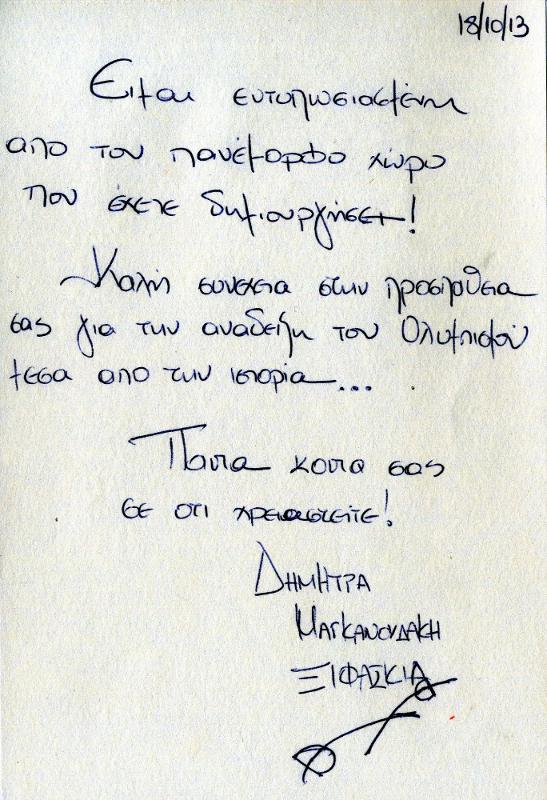 18/10/13
Ειμαι εντυπωσιασμένη
απο τον πανέμορφο χώρο
που έχετε δημιουργήσει!
Καλή συνεχεια στην προσπαθεια
σας για την αναδειξη του Ολυμπισμού
μεσα απο την ιστορία...
Παντα κοντα σας
σε οτι χρειαστειτε!
ΔΗΜΗΤΡΑ
ΜΑΓΚΑΝΟΥΔΑΚΗ
ΞΙΦΑΣΚΙΑ